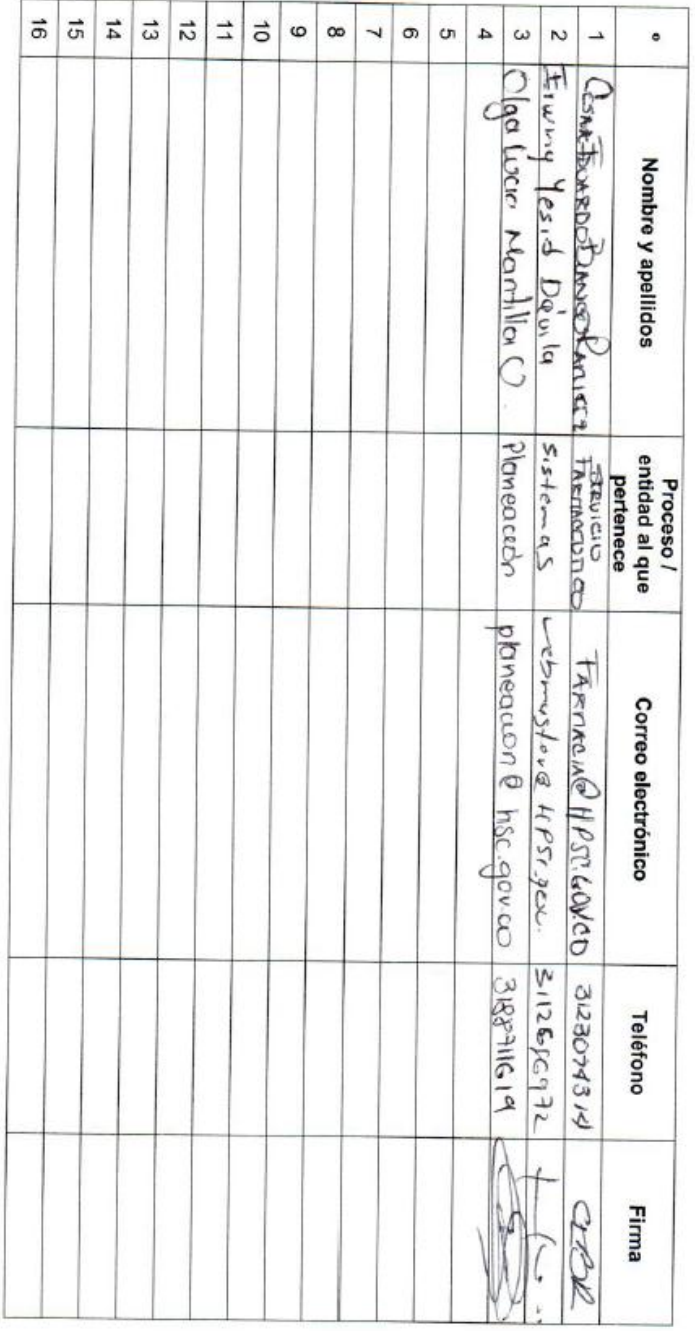 ° Nombre y apellidos Proceso / entidad al que pertenece Correo electrónico Teléfono Firma
1 CESAR EDUARDO RAMIREZ SERVICIO FARMACEUTICO FARMACIA@HPSC.GOV.CO 3123074314
2 Yesid Dávila sistemas
3 Olga Lucia Mantilla O. Planeación planeacion@hsc.gov.co
4
5
6
7
8
9
10
11
12
13
14
15
16